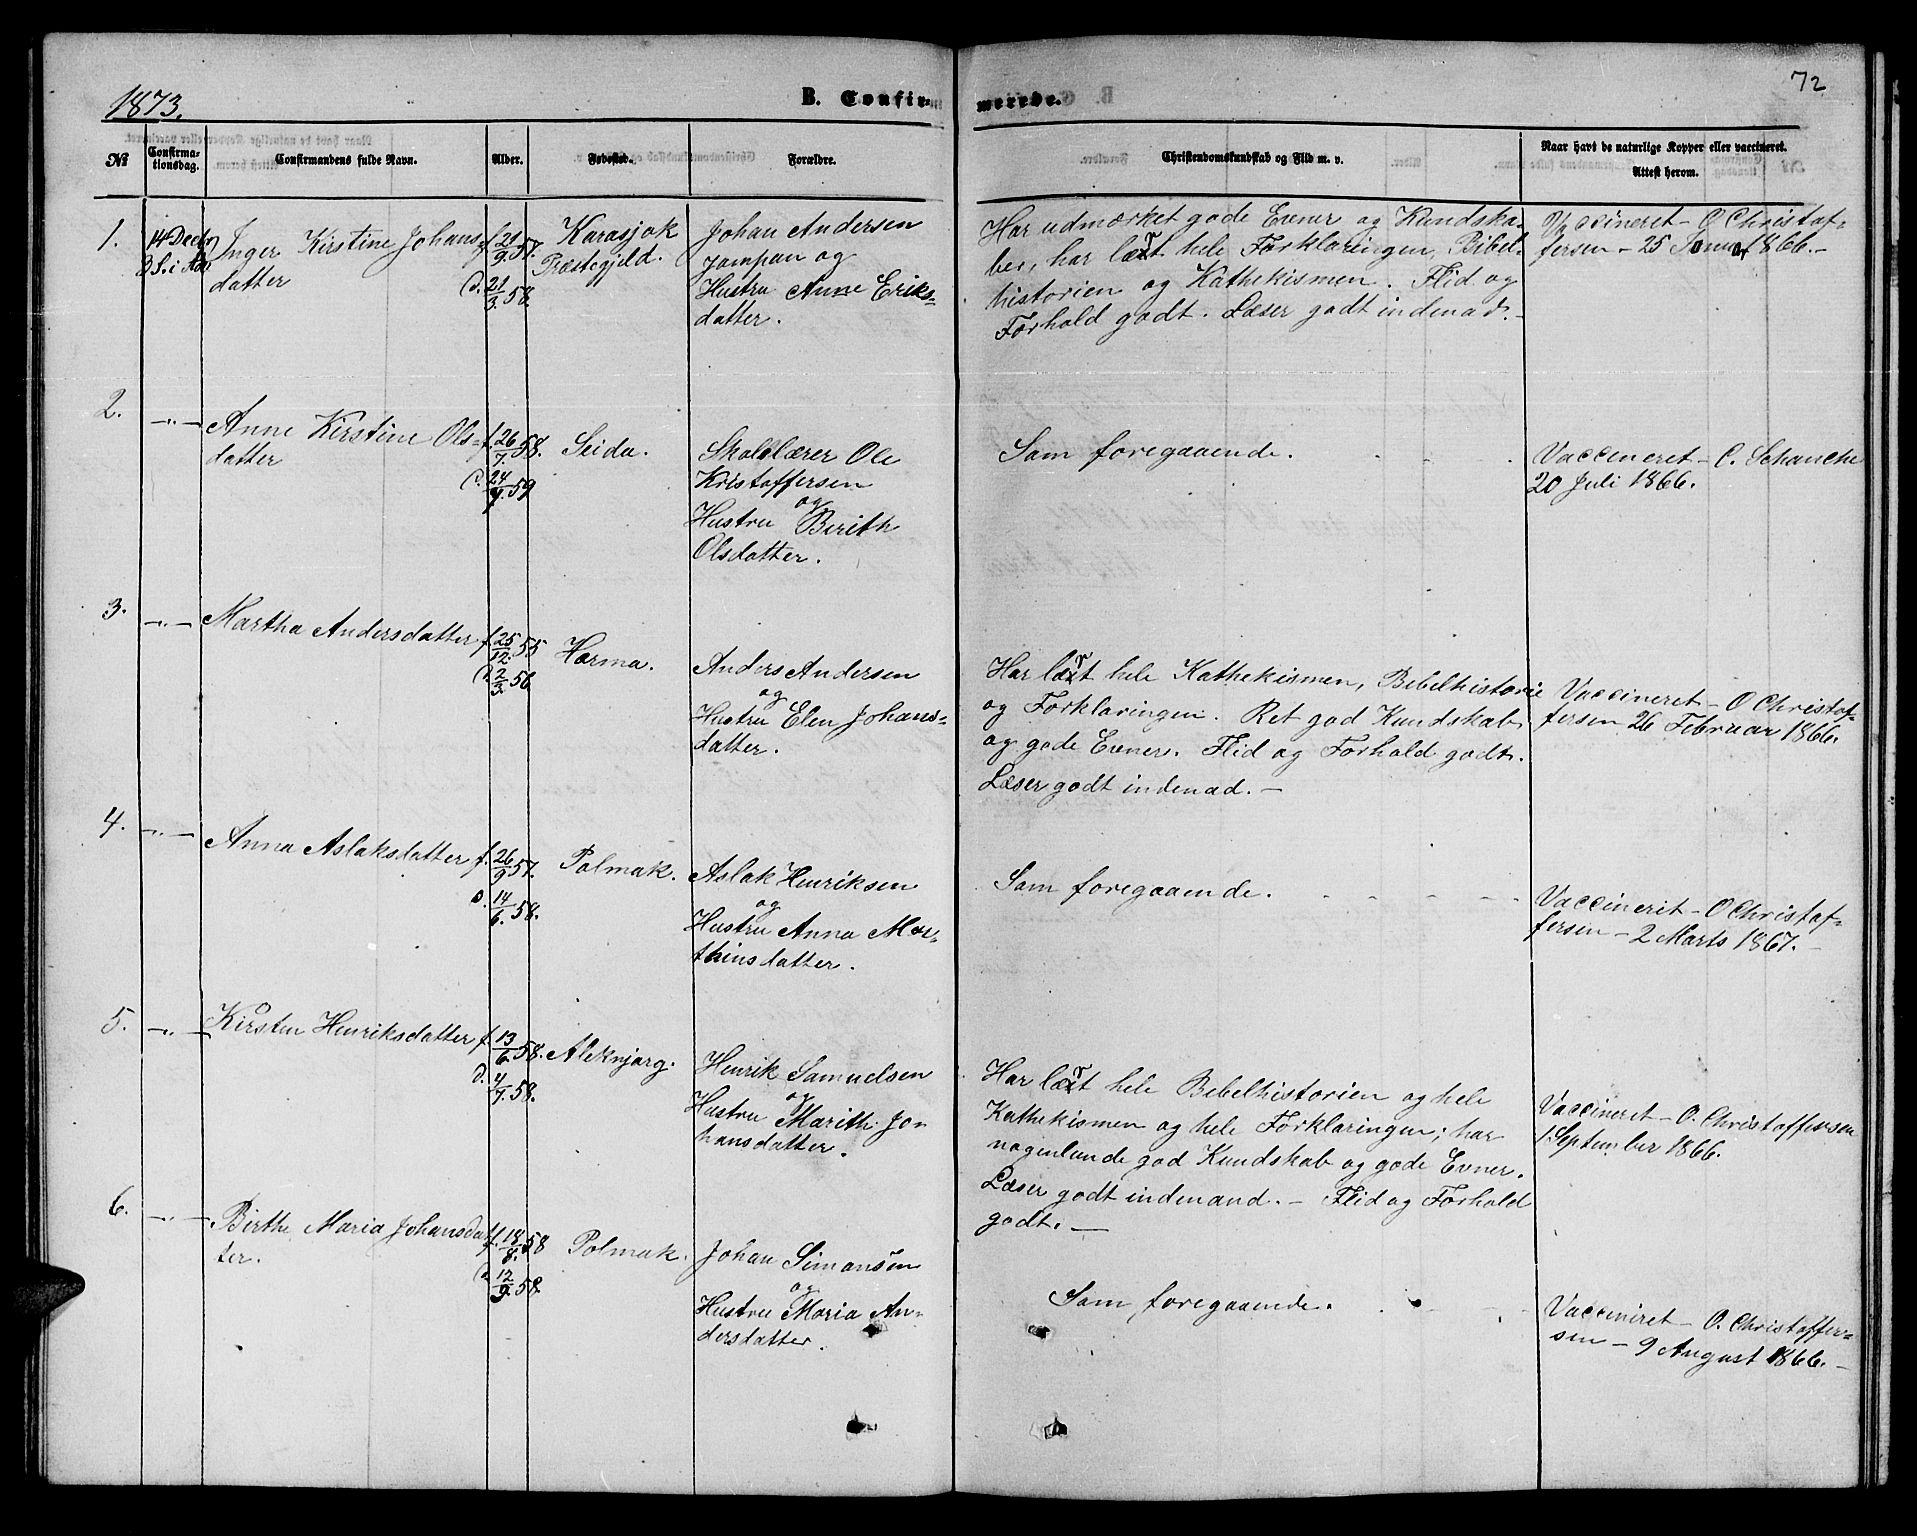 1873.
B. Confir-
merede.
72
No
Confirma-
tionsdag.
Confirmandens fulde Navn.
Alder.
Fødested.
Forældre.
Christendomskundskab og Flid m. v.
Naar havt de naturlige Kopper eller vaccineret.
Attest herom.
1.
14 Decbr
3 S. i Adv
Inger Kirstine Johans-
datter
f. 21/9 57.
d. 21/3 58
Karasjok
Præstegjeld.
Johan Andersen
Jompan og
Hustru Anne Eriks-
datter.
Har udmærket gode Evner og Kundska-
ber, har læst hele Forklaringen, Bibel-
historien og Kathekismen. Flid og
Forhold godt. Læser godt indenad.-
Vaccineret - O Christof-
fersen - 25 Januar 1866.-
2.
-"-
Anne Kirstine Ols-
datter
f. 26/7. 58.
d. 24/9. 59
Seida.
Skolelærer Ole
Kristoffersen
og
Hustru Berith
Olsdatter.
Som foregaaende.
Vaccineret - C. Schanche
20 Juli 1866.
3.
-"-
Martha Andersdatter
f. 25/12. 55
d. 2/3. 56
Horma.
Anders Andersen
og
Hustru Elen Johans-
datter.
Har læst hele Kathekismen, Bibelhistorie
og Forklaringen. Ret god Kundskab
og gode Evner. Flid og Forhold godt.
Læser godt indenad. -
Vaccineret - O Christof-
fersen 26 Februar 1866.
4.
-"-
Anna Aslaksdatter
f. 26/9 57.
d. 14/6. 58.
Polmak.
Aslak Henriksen
og
Hustru Anna Mor-
thinsdatter.
Som foregaaende.
Vaccinerit - O Christof-
fersen - 2 Marts 1867. -
5.
-"-
Kirsten Henriksdatter
f. 13/6. 58.
d. 4/7. 58.
Aleknjarg.
Henrik Samuelsen
og
Hustru Marith Jo-
hansdatter.
Har læst hele Bebelhistorien og hele
Kathekismen og hele Forklaringen; har
nogenlunde god Kundskab og gode Evner.
Læser godt indenand. - Flid og Forhold
godt. -
Vaccineret - O. Christoffersen
1 September 1866.
6.
-"-
Birthe Maria Johansdat-
ter.
f. 18/8. 58
d. 12/9. 58.
Polmak.
Johan Simonsen
og
Hustru Maria An-
dersdatter.
Som foregaaende.
Vaccineret - O. Christoffer-
sen - 9 August 1866. -